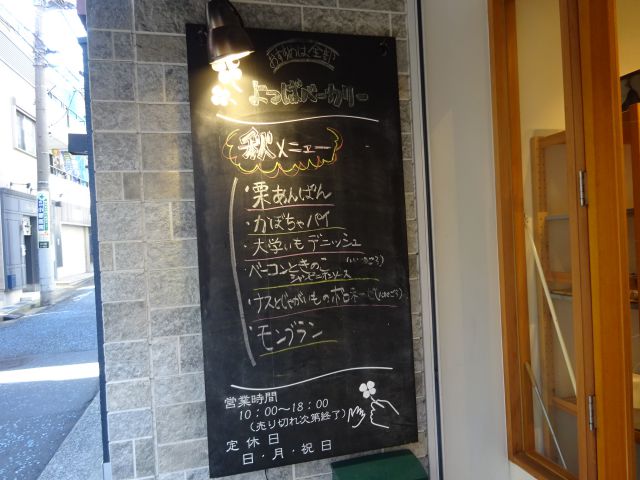 おすすめは全部
よつばベーカリー
秋メニュー
・栗あんぱん
・かぼちゃパイ
・大学いもデニッシュ
・ベーコンときのこ
シャンピニオンソース
・ナスとじゃがいものボロネーゼ
・モンブラン
営業時間
10:00～18:00
(売り切れ次第終了)
定休日
日・月・祝日